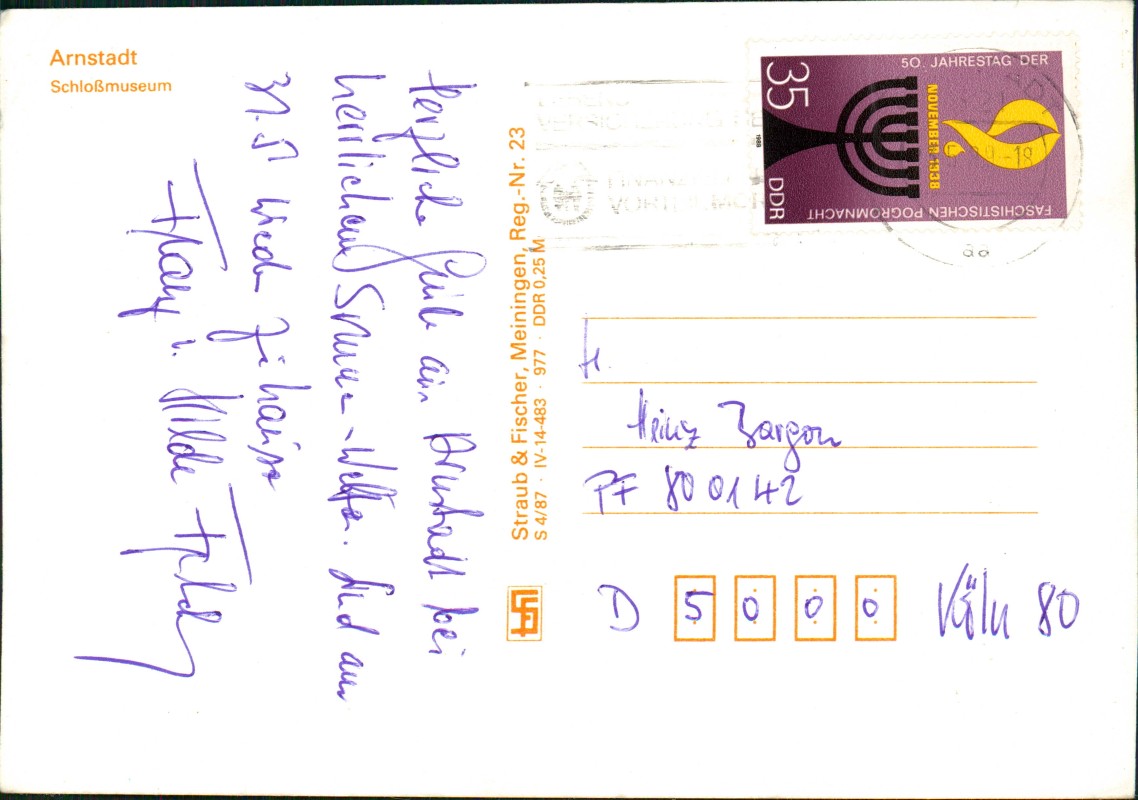 Arnstadt
Schloßmuseum
Herzliche Grüße aus Arnstadt bei
herrlichem Sommer-Wetter. Sind am
31.5 wieder zuhause
Franz u. Hilde
Straub & Fischer, Meiningen, Reg.-Nr. 23
S 4/87 · IV-14-483 · 977 · DDR 0,25 M
50. JAHRESTAG DER
FASCHISTISCHEN POGROMNACHT
NOVEMBER 1938
35
DDR
1988
-18
Fr.
Heinz Bargon
PF 80 01 42
D 5000 Köln 80